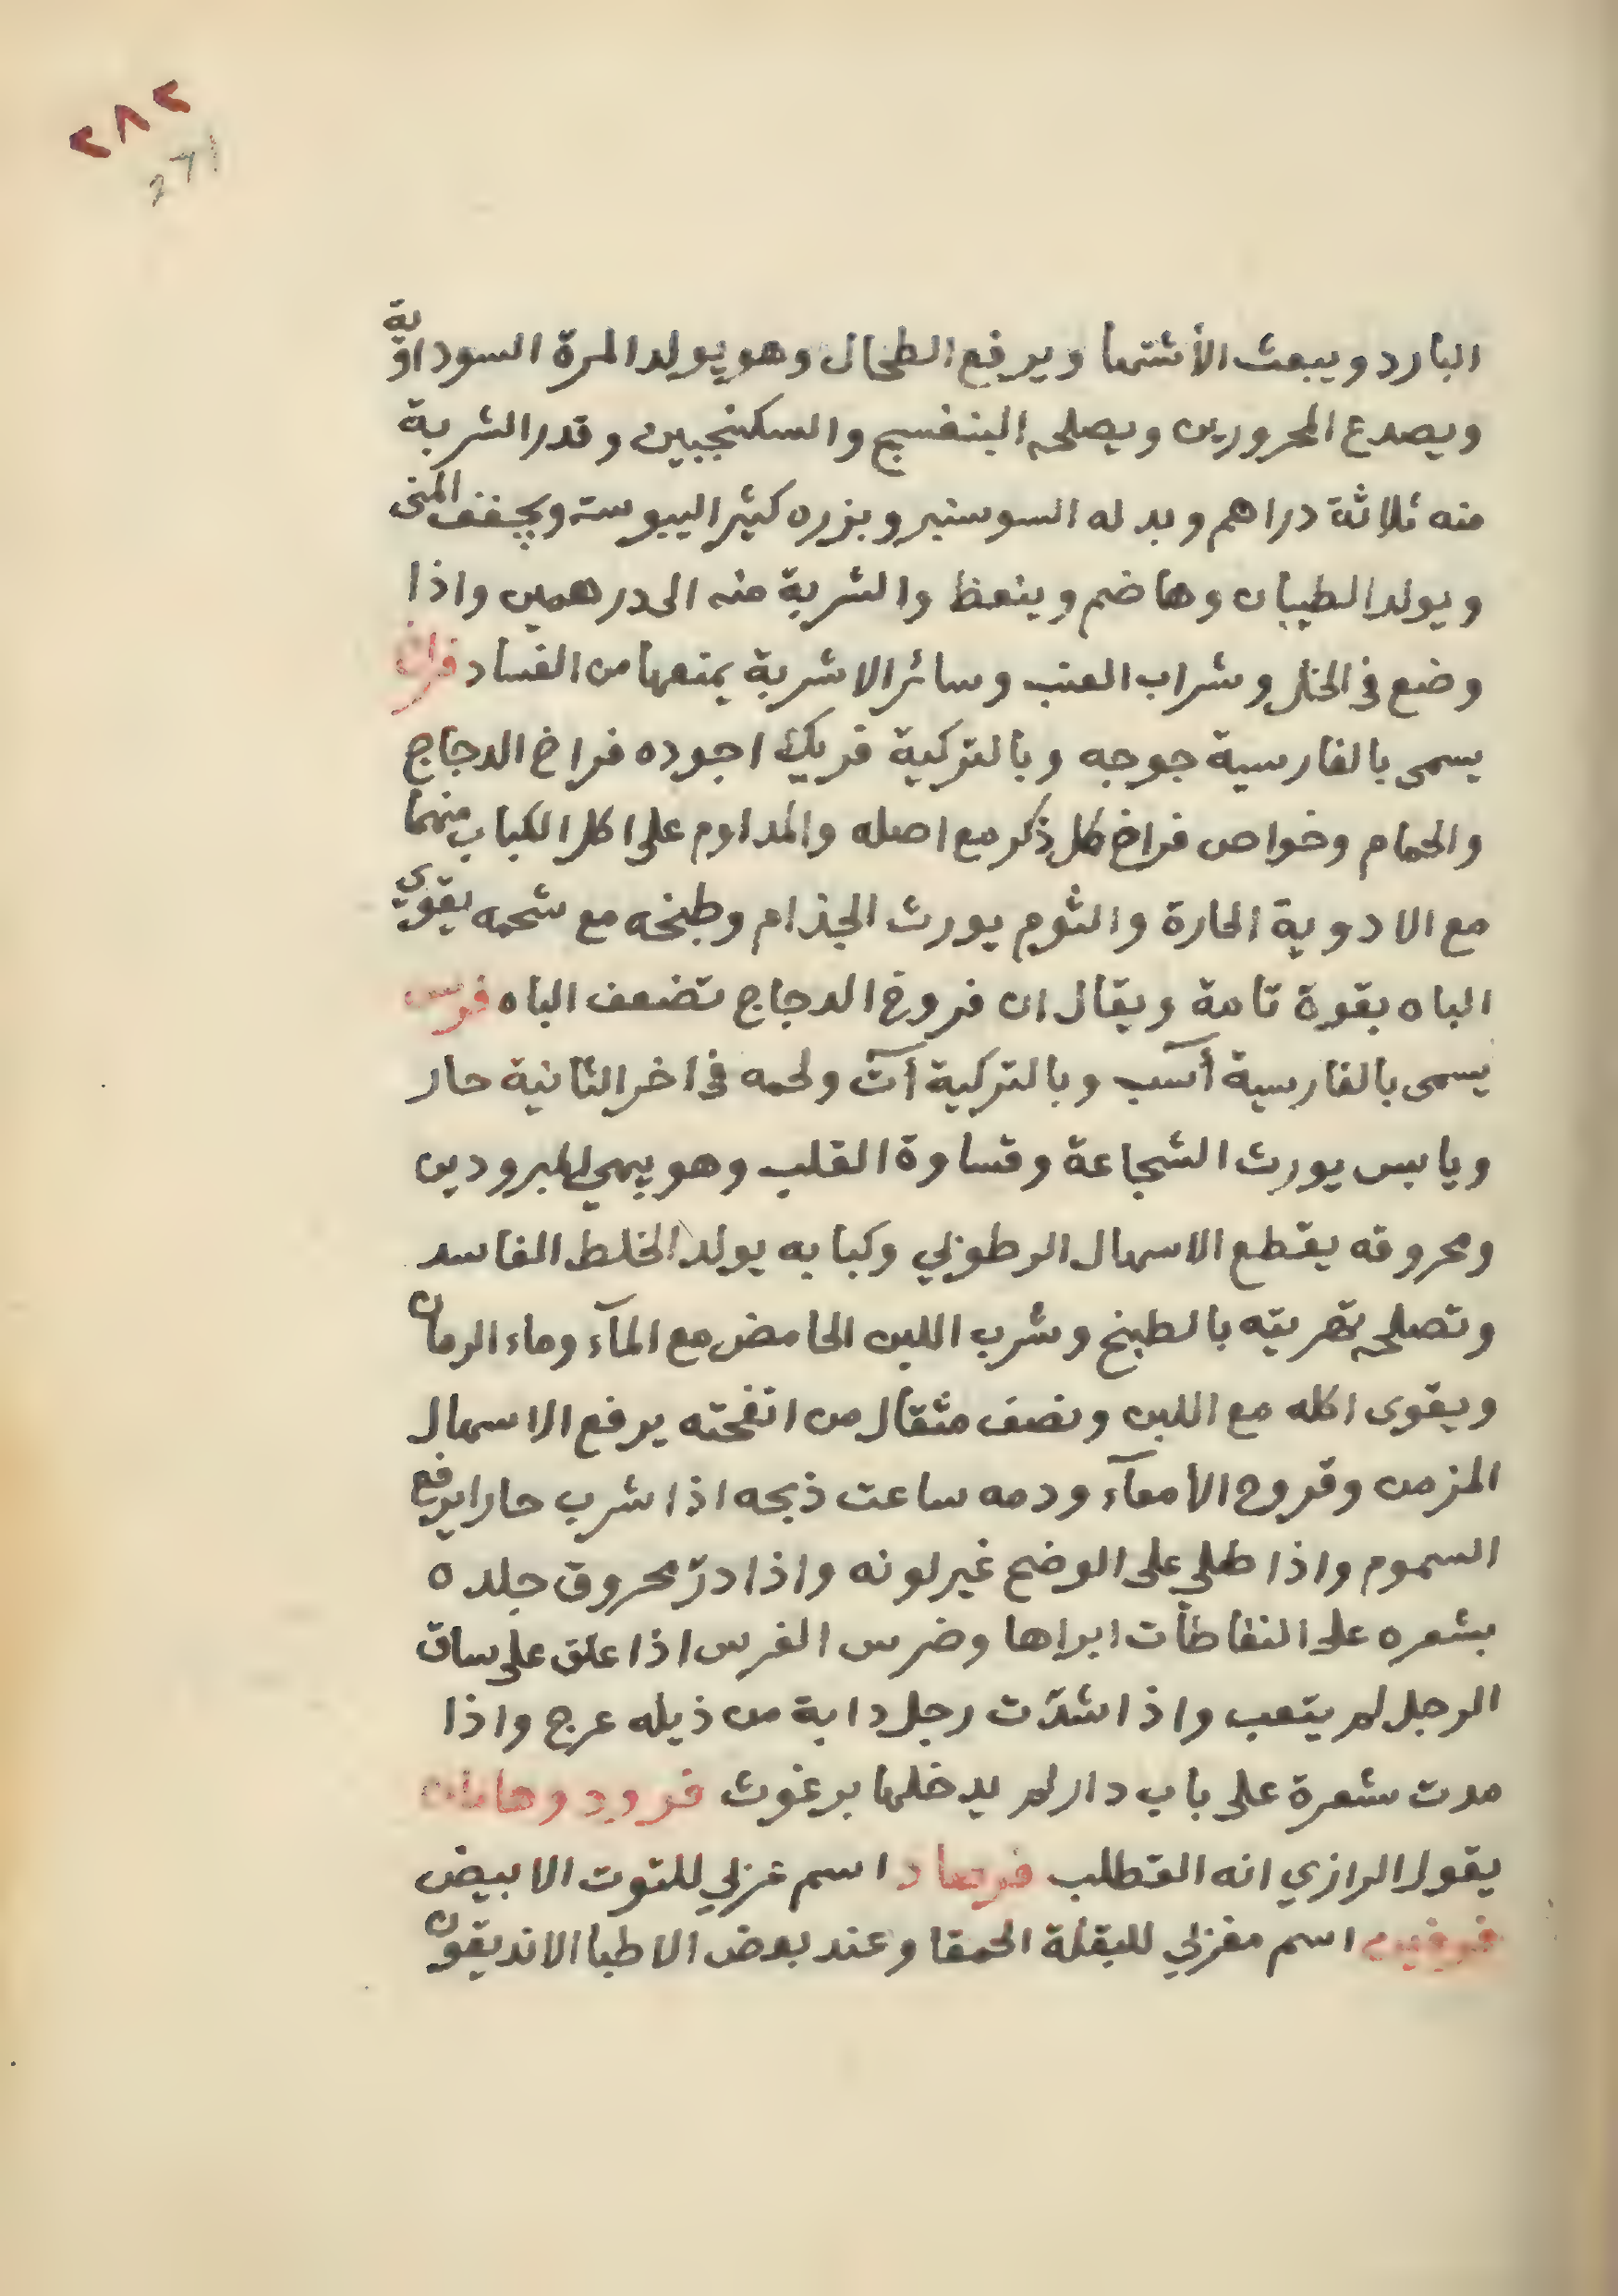 ٢٨٢
271
البارد ويبعث الأشتها ويرفع الطحال وهو يولد المرة السوداوية
ويصدع المحرورين ويصلحه البنفسج والسكنجبين وقدر الشربة
منه ثلاثة دراهم وبدله السوسنبر وبزره كثير اليبوسة ويجفف المنى
ويولد الطيبان وهاضم وينعظ والشربة منه الى درهمين واذا
وضع فى الخل وشراب العنب وسائر الاشربة يمنعها من الفساد فراخ
يسمى بالفارسية جوجه وبالتركية فريك اجوده فراخ الدجاج
والحمام وخواص فراخ كل ذكر مع اصله والمداوم على اكل الكباب منهما
مع الادوية الحارة والثوم يورث الجذام وطبخه مع شحمه يقوي
الباه بقوة تامة ويقال ان فروخ الدجاج تضعف الباه فرس
يسمى بالفارسية أسب وبالتركية آت ولحمه فى اخر الثانية حار
ويابس يورث الشجاعة وقساوة القلب وهو يهي للمبرودين
ومحروقه يقطع الاسهال الرطوبي وكبابه يولد الخلط الفاسد
وتصلحه تهريته بالطبخ وشرب اللبن الحامض مع المآء وماء الرمان
ويقوى اكله مع اللبن ونصف مثقال من انفحته يرفع الاسهال
المزمن وقروح الأمعآء ودمه ساعت ذبحه اذا شرب حارا يرفع
السموم واذا طلي على الوضح غير لونه واذا درّ محروق جلده
بشعره على النفاطات ابراها وضرس الفرس اذا علق على ساق
الرجل لم يتعب واذا شدّت رجل دابة من ذيله عرج واذا
مدت شعرة على باب دار لم يدخلها برغوث فرود وهامان
يقول الرازي انه القطلب فرصاد اسم عزبي للتوت الابيض
فرفين اسم مغزبي للبقلة الحمقا وعند بعض الاطبا الاند يقون